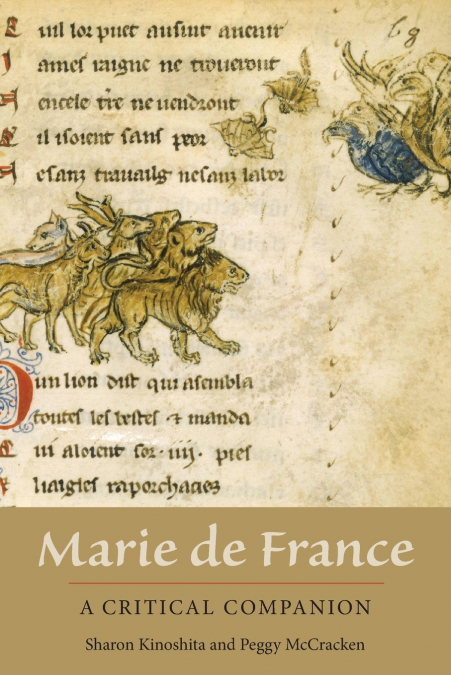 uil lor puet auſint auenir
ameſ raigne ne troueront
encele tr̄e ne uendront
il iſoient ſanſ peor
eſanz trauailg neſanz labor
bg
Dun lion diſt qui aſembla
touteſ leſ beſteſ ⁊ manda
ui aloient ſor · iiij · pieſ
liaigleſ raporchacieſ
Marie de France
A CRITICAL COMPANION
Sharon Kinoshita and Peggy McCracken